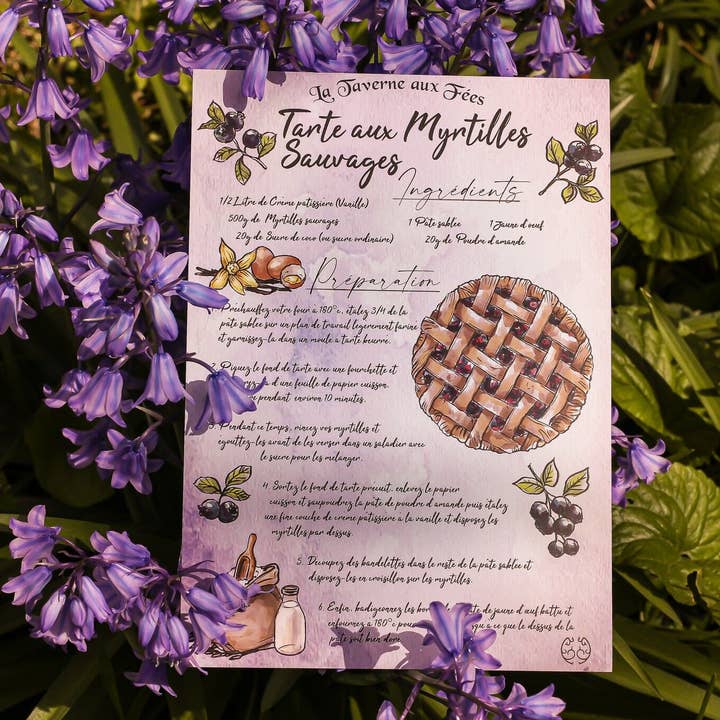 La Taverne aux Fées
Tarte aux Myrtilles
Sauvages
Ingrédients
1/2 Litre de Crème patissière (Vanille)
500g de Myrtilles sauvages
20g de Sucre de coco (ou sucre ordinaire)
1 Pâte sablée 1 Jaune d'oeuf
20g de Poudre d'amande
Préparation
Préchauffez votre four à 180°c, étalez 3/4 de la
pâte sablée sur un plan de travail légèrement fariné
et garnissez-la dans un moule à tarte beurré.
2. Piquez le fond de tarte avec une fourchette et
d'une feuille de papier cuisson.
pendant environ 10 minutes.
Pendant ce temps, rincez vos myrtilles et
égouttez-les avant de les verser dans un saladier avec
le sucre pour les mélanger.
4. Sortez le fond de tarte précuit, enlevez le papier
cuisson et saupoudrez la pâte de poudre d'amande puis étalez
une fine couche de crème patissière à la vanille et disposez les
myrtilles par dessus.
5. Découpez des bandelettes dans le reste de la pâte sablée et
disposez-les en croisillon sur les myrtilles.
6. Enfin, badigeonnez les de jaune d'oeuf battu et
enfournez à 180°c à ce que le dessus de la
pâte soit bien doré.